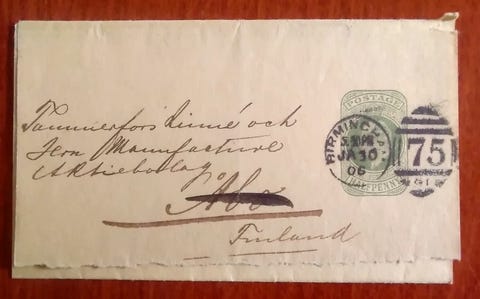 Tammerfors Linné och
Jern Manufacture
Aktiebolag
Åbo
Finland
POSTAGE
HALFPENNY
BIRMINGHAM
JA 30
06
75